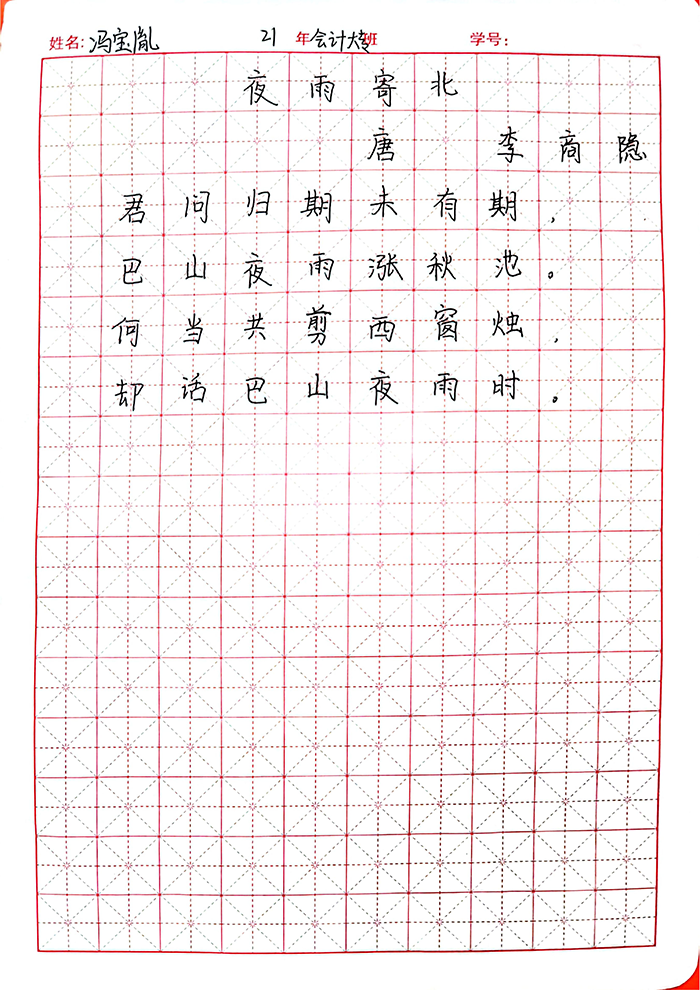 姓名:冯宝胤 21年会计大专班 学号:
夜雨寄北
唐 李商隐
君问归期未有期,
巴山夜雨涨秋池。
何当共剪西窗烛,
却话巴山夜雨时。